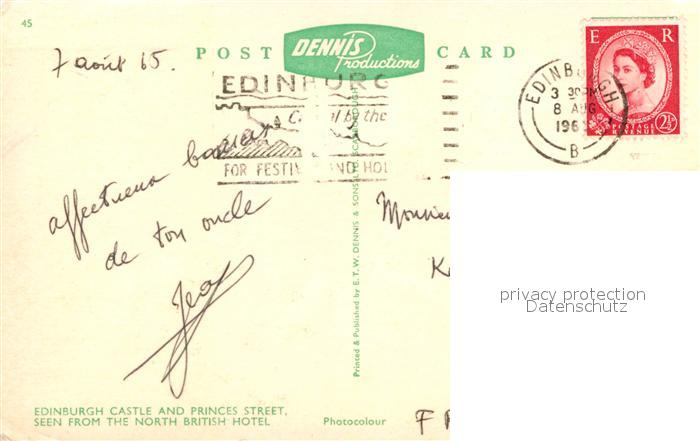 45
7 août 65.
POST CARD
DENNIS
Productions
EDINBURG
by the
FOR FESTIV AND HOL
EDINBURGH
3 30PM
8 AUG
196
B
E R
POSTAGE
REVENUE
2½D
affectueux baisers
de ton oncle
Jea
Monsieu
K
F
Printed & Published by E. T. W. DENNIS & SONS LTD. SCARBOROUGH
privacy protection
Datenschutz
EDINBURGH CASTLE AND PRINCES STREET,
SEEN FROM THE NORTH BRITISH HOTEL
Photocolour